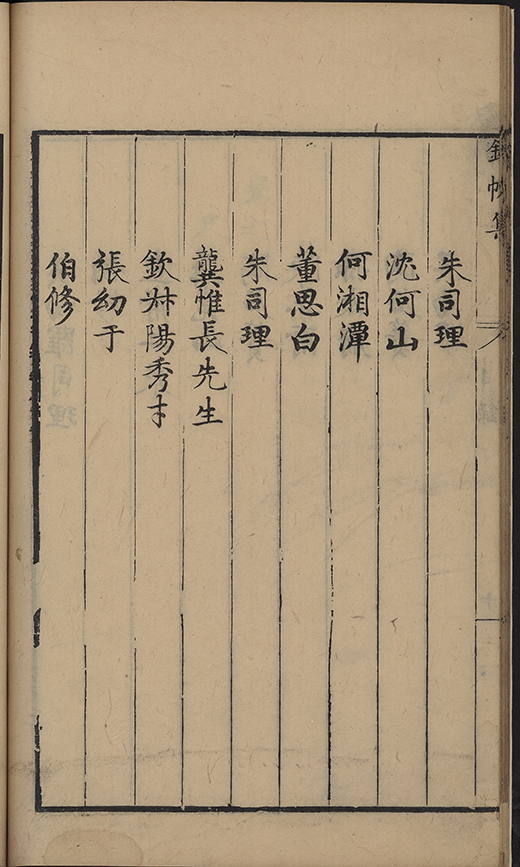 錦帆集
朱司理
沈何山
何湘潭
董思白
朱司理
龔惟長先生
欽叔陽秀才
張幼于
伯修